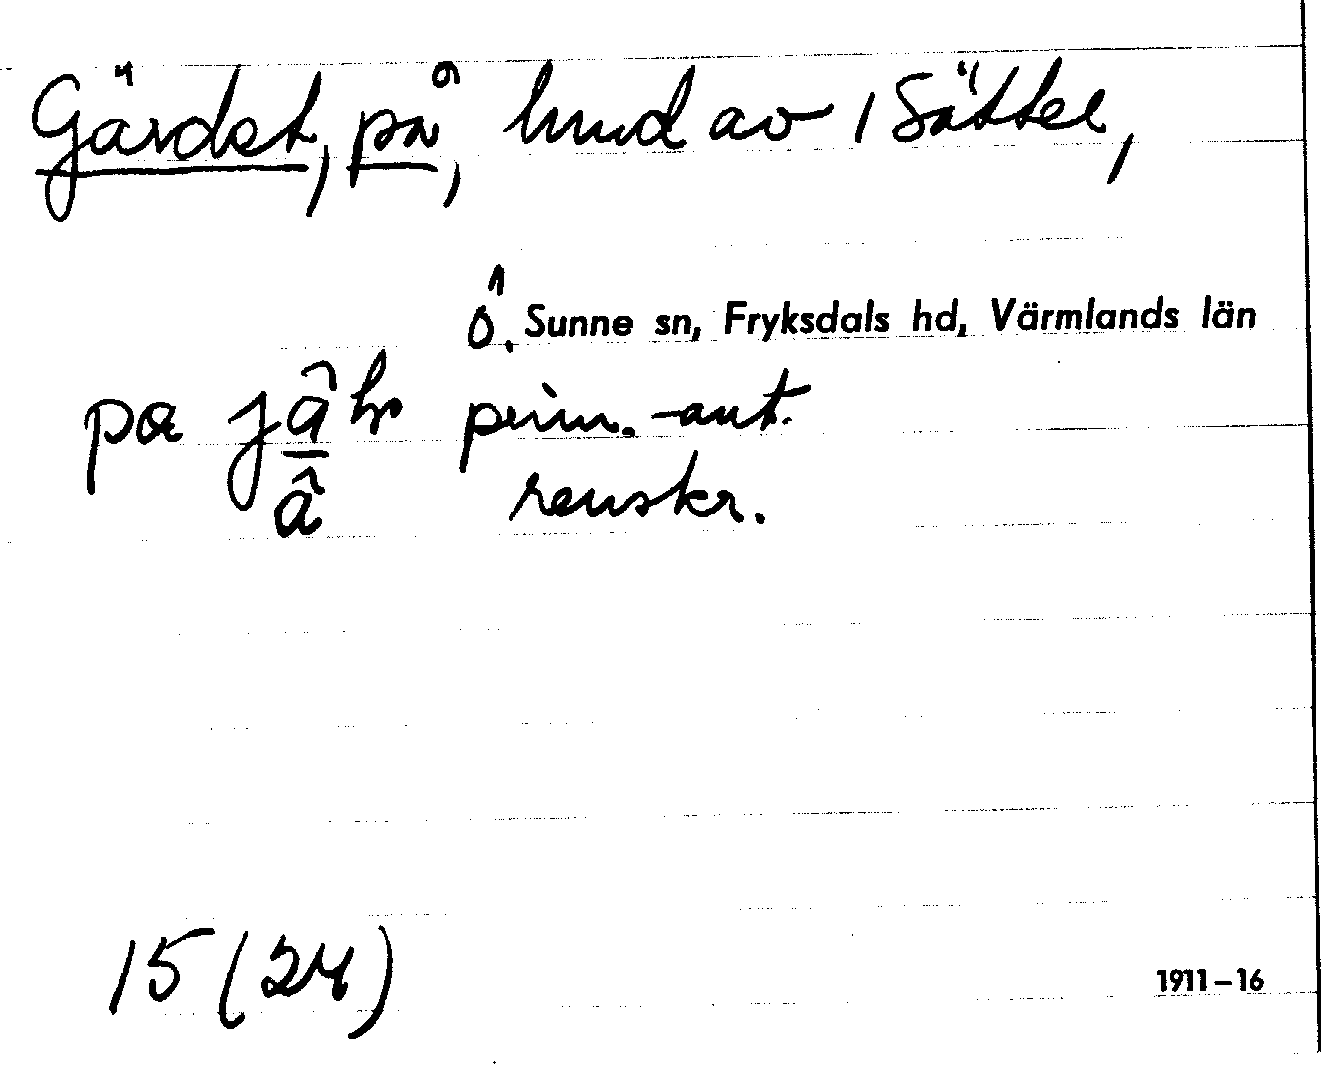 Gärdet, på, hmd av 1 Sätter,
Ö. Sunne sn, Fryksdals hd, Värmlands län
pa jâ prim.-ant.
â renskr.
15 (24)
1911–16